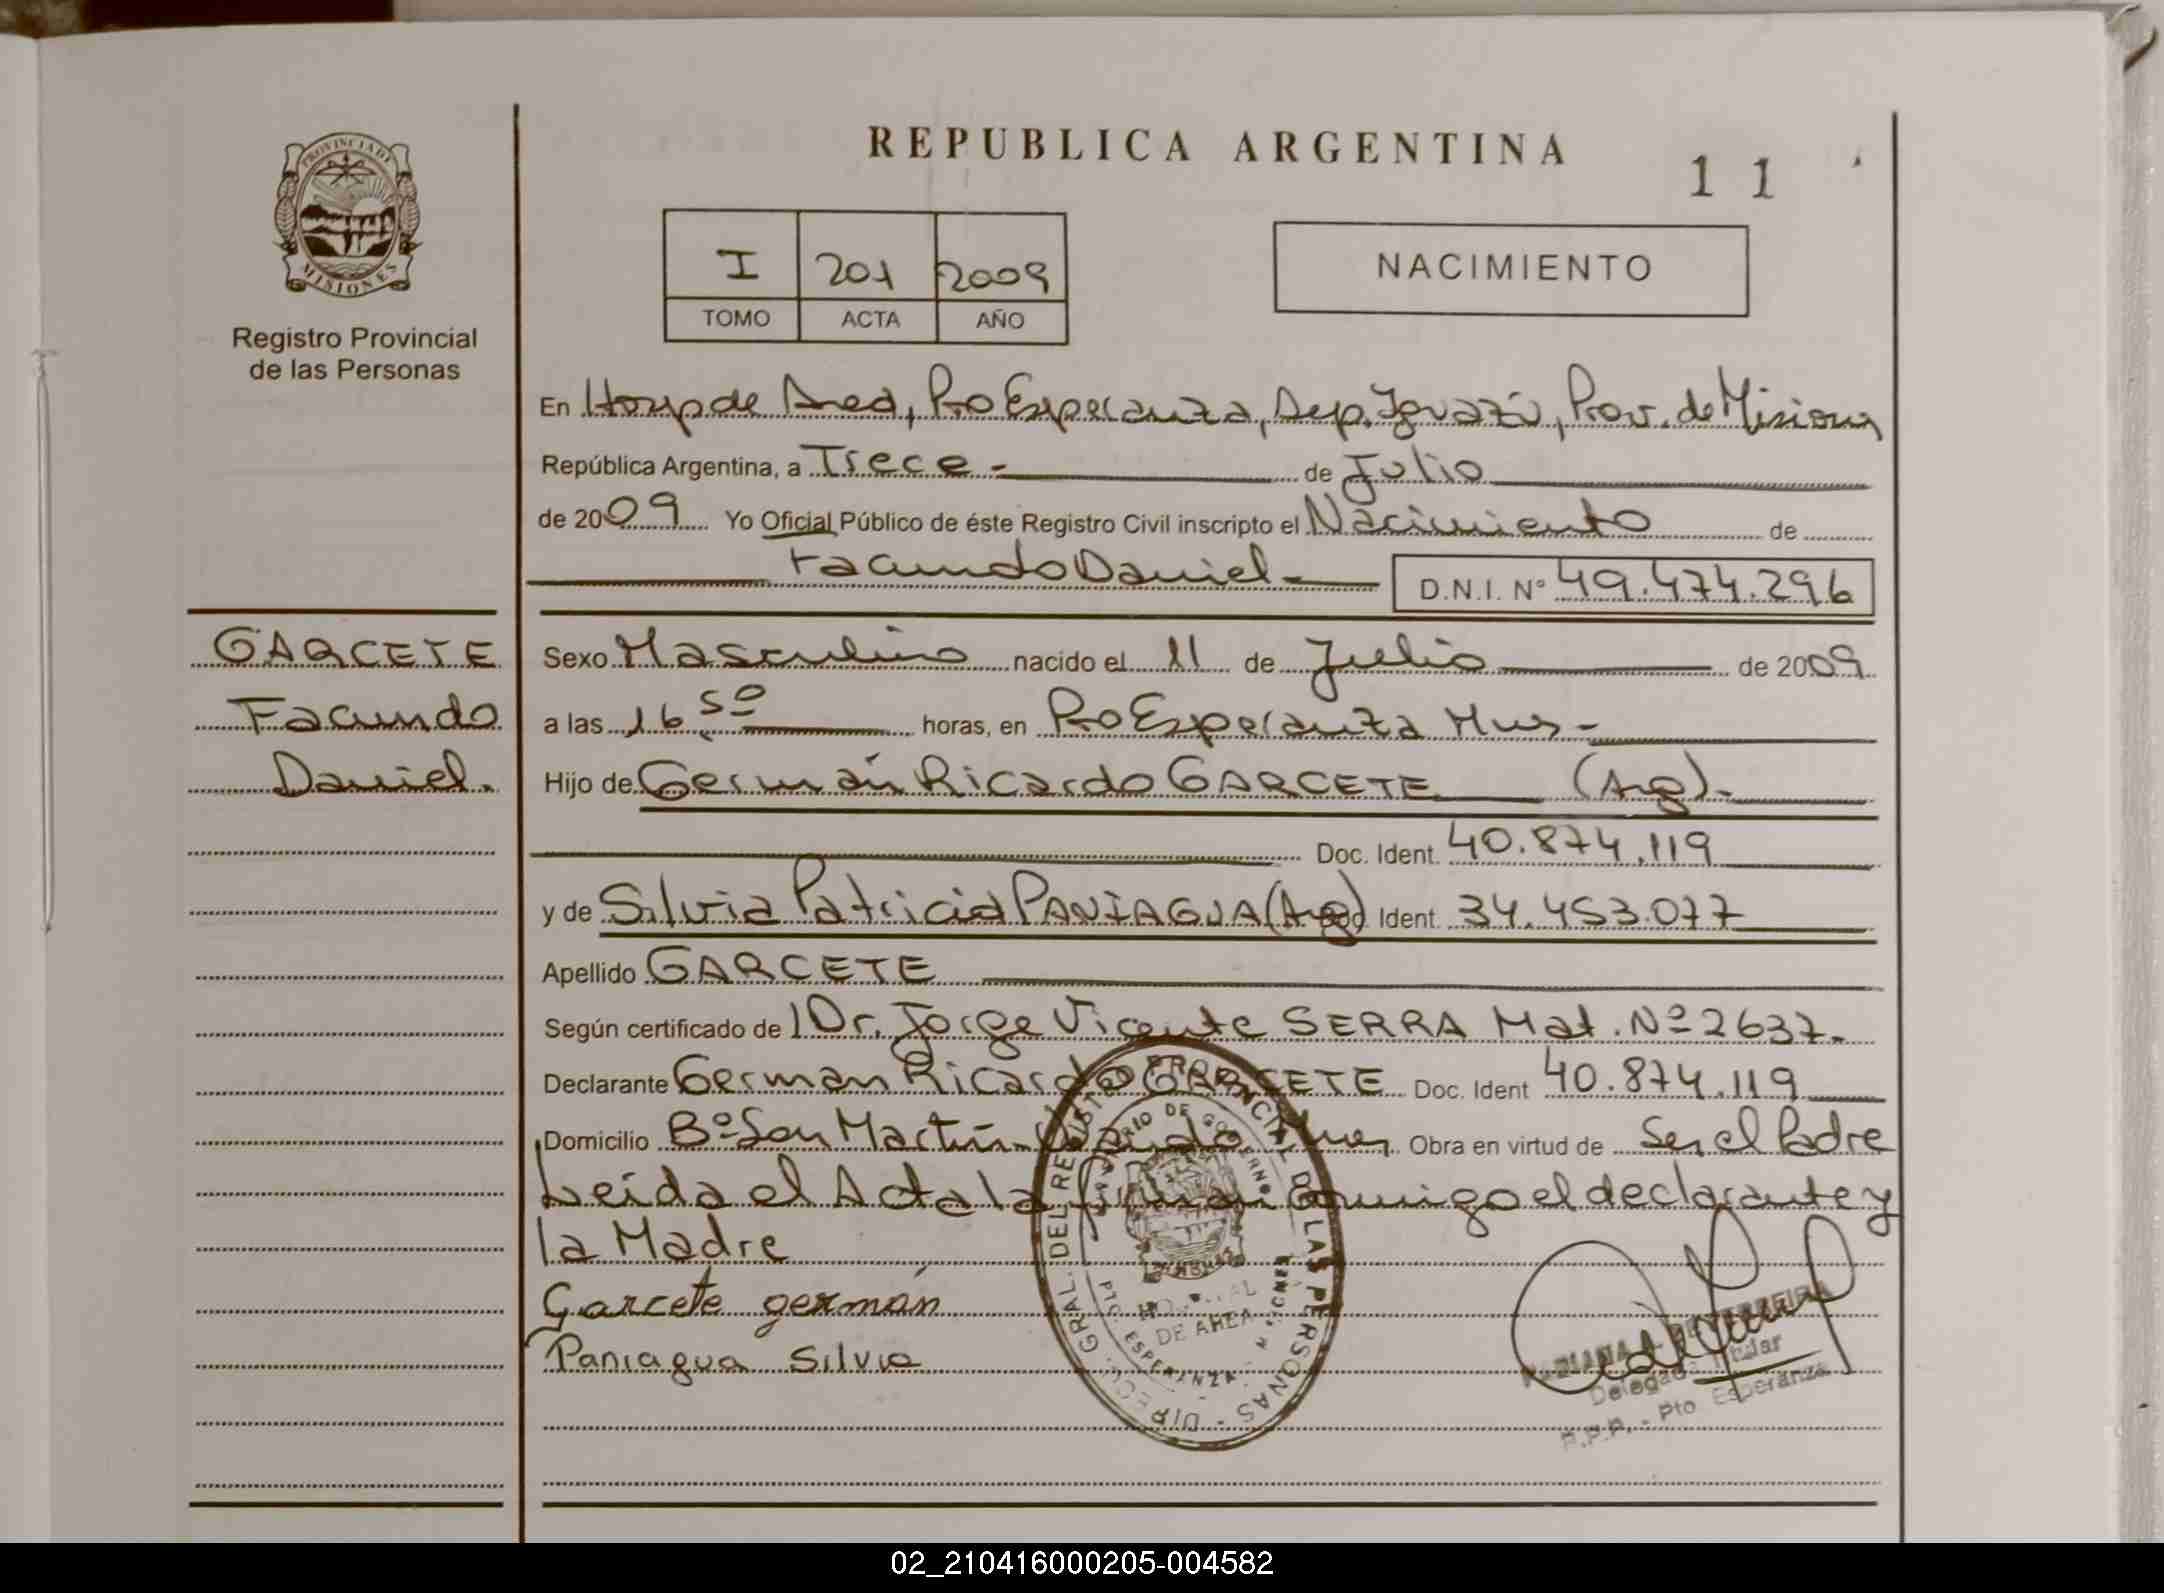 REPUBLICA ARGENTINA
11
PROVINCIA DE
MISIONES
Registro Provincial
de las Personas
I 201 2009
TOMO ACTA AÑO
NACIMIENTO
En Hosp de Area, Pto Esperanza, Dep. Iguazú, Prov. de Misiones
República Argentina, a Trece - de Julio
de 2009 Yo Oficial Público de éste Registro Civil inscripto el Nacimiento de
Facundo Daniel - D.N.I. Nº 49.474.296
GARCETE
Facundo
Daniel.
Sexo Masculino nacido el 11 de Julio de 2009
a las 16 50 horas, en Pto Esperanza Mnes -
Hijo de Germán Ricardo GARCETE (Arg) -
Doc. Ident. 40.874.119
y de Silvia Patricia PANIAGUA (Arg) Doc. Ident. 34.453.077
Apellido GARCETE
Según certificado de 1 Dr. Jorge Vicente SERRA Mat. Nº 2637.
Declarante German Ricardo GARCETE Doc. Ident 40.874.119
Domicilio Bº San Martín - Mnes Obra en virtud de Ser el Padre
Leida el Acta la firman Conmigo el declarante y
la Madre
Garcete germán
Paniagua Silvia
DIRECC. GRAL. DEL REGISTRO PROVINCIAL DE LAS PERSONAS
MINISTERIO DE GOBIERNO
HOSPITAL
DE AREA
ESPERANZA
Delegada Titular
R.P.P. - Pto Esperanza
02_210416000205-004582